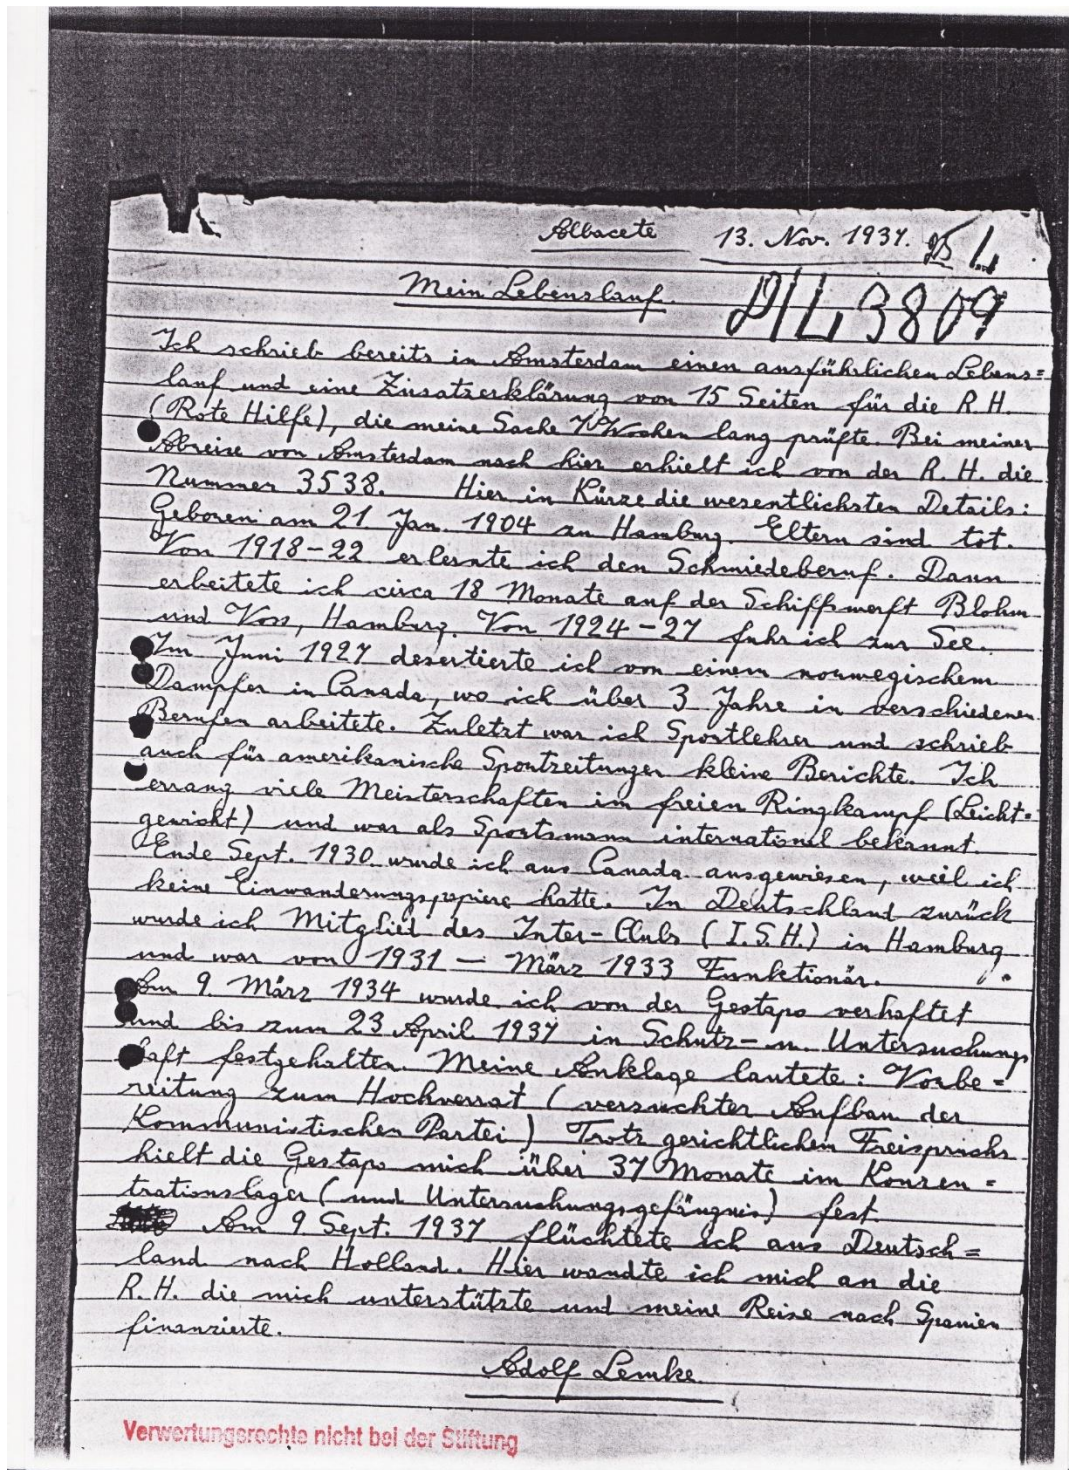 Albacete 13. Nov. 1937.
L
Mein Lebenslauf. 3809
Ich schrieb bereits in Amsterdam einen ausführlichen Lebens=
lauf und eine Zusatzerklärung von 15 Seiten für die R. H.
(Rote Hilfe), die meine Sache Wochen lang prüfte. Bei meiner
Abreise von Amsterdam nach hier erhielt ich von der R. H. die
Nummer 3538. Hier in Kürze die wesentlichsten Details:
Geboren am 21 Jan. 1904 zu Hamburg. Eltern sind tot.
Von 1918-22 erlernte ich den Schmiedeberuf. Dann
arbeitete ich circa 18 Monate auf der Schiffswerft Blohm
und Voss, Hamburg. Von 1924-27 fuhr ich zur See.
Im Juni 1927 desertierte ich von einem norwegischem
Dampfer in Canada, wo ich über 3 Jahre in verschiedenen
Berufen arbeitete. Zuletzt war ich Sportlehrer und schrieb
auch für amerikanische Sportzeitungen kleine Berichte. Ich
errang viele Meisterschaften im freien Ringkampf (Leicht=
gewicht) und war als Sportsmann international bekannt.
Ende Sept. 1930 wurde ich aus Canada ausgewiesen, weil ich
keine Einwanderungspapiere hatte. In Deutschland zurück
wurde ich Mitglied des Inter-Clubs (I.S.H.) in Hamburg
und war von 1931 - März 1933 Funktionär.
Am 9. März 1934 wurde ich von der Gestapo verhaftet
und bis zum 23 April 1937 in Schutz- u. Untersuchungs
haft festgehalten. Meine Anklage lautete: Vorbe=
reitung zum Hochverrat (versuchter Aufbau der
Kommunistischen Partei) Trotz gerichtlichen Freispruchs
hielt die Gestapo mich über 37 Monate im Konzen=
trationslager (und Untersuchungsgefängnis) fest.
Am 9 Sept. 1937 flüchtete ich aus Deutsch=
land nach Holland. Hier wandte ich mich an die
R. H. die mich unterstützte und meine Reise nach Spanien
finanzierte.
Adolf Lemke.
Verwertungsrechte nicht bei der Stiftung